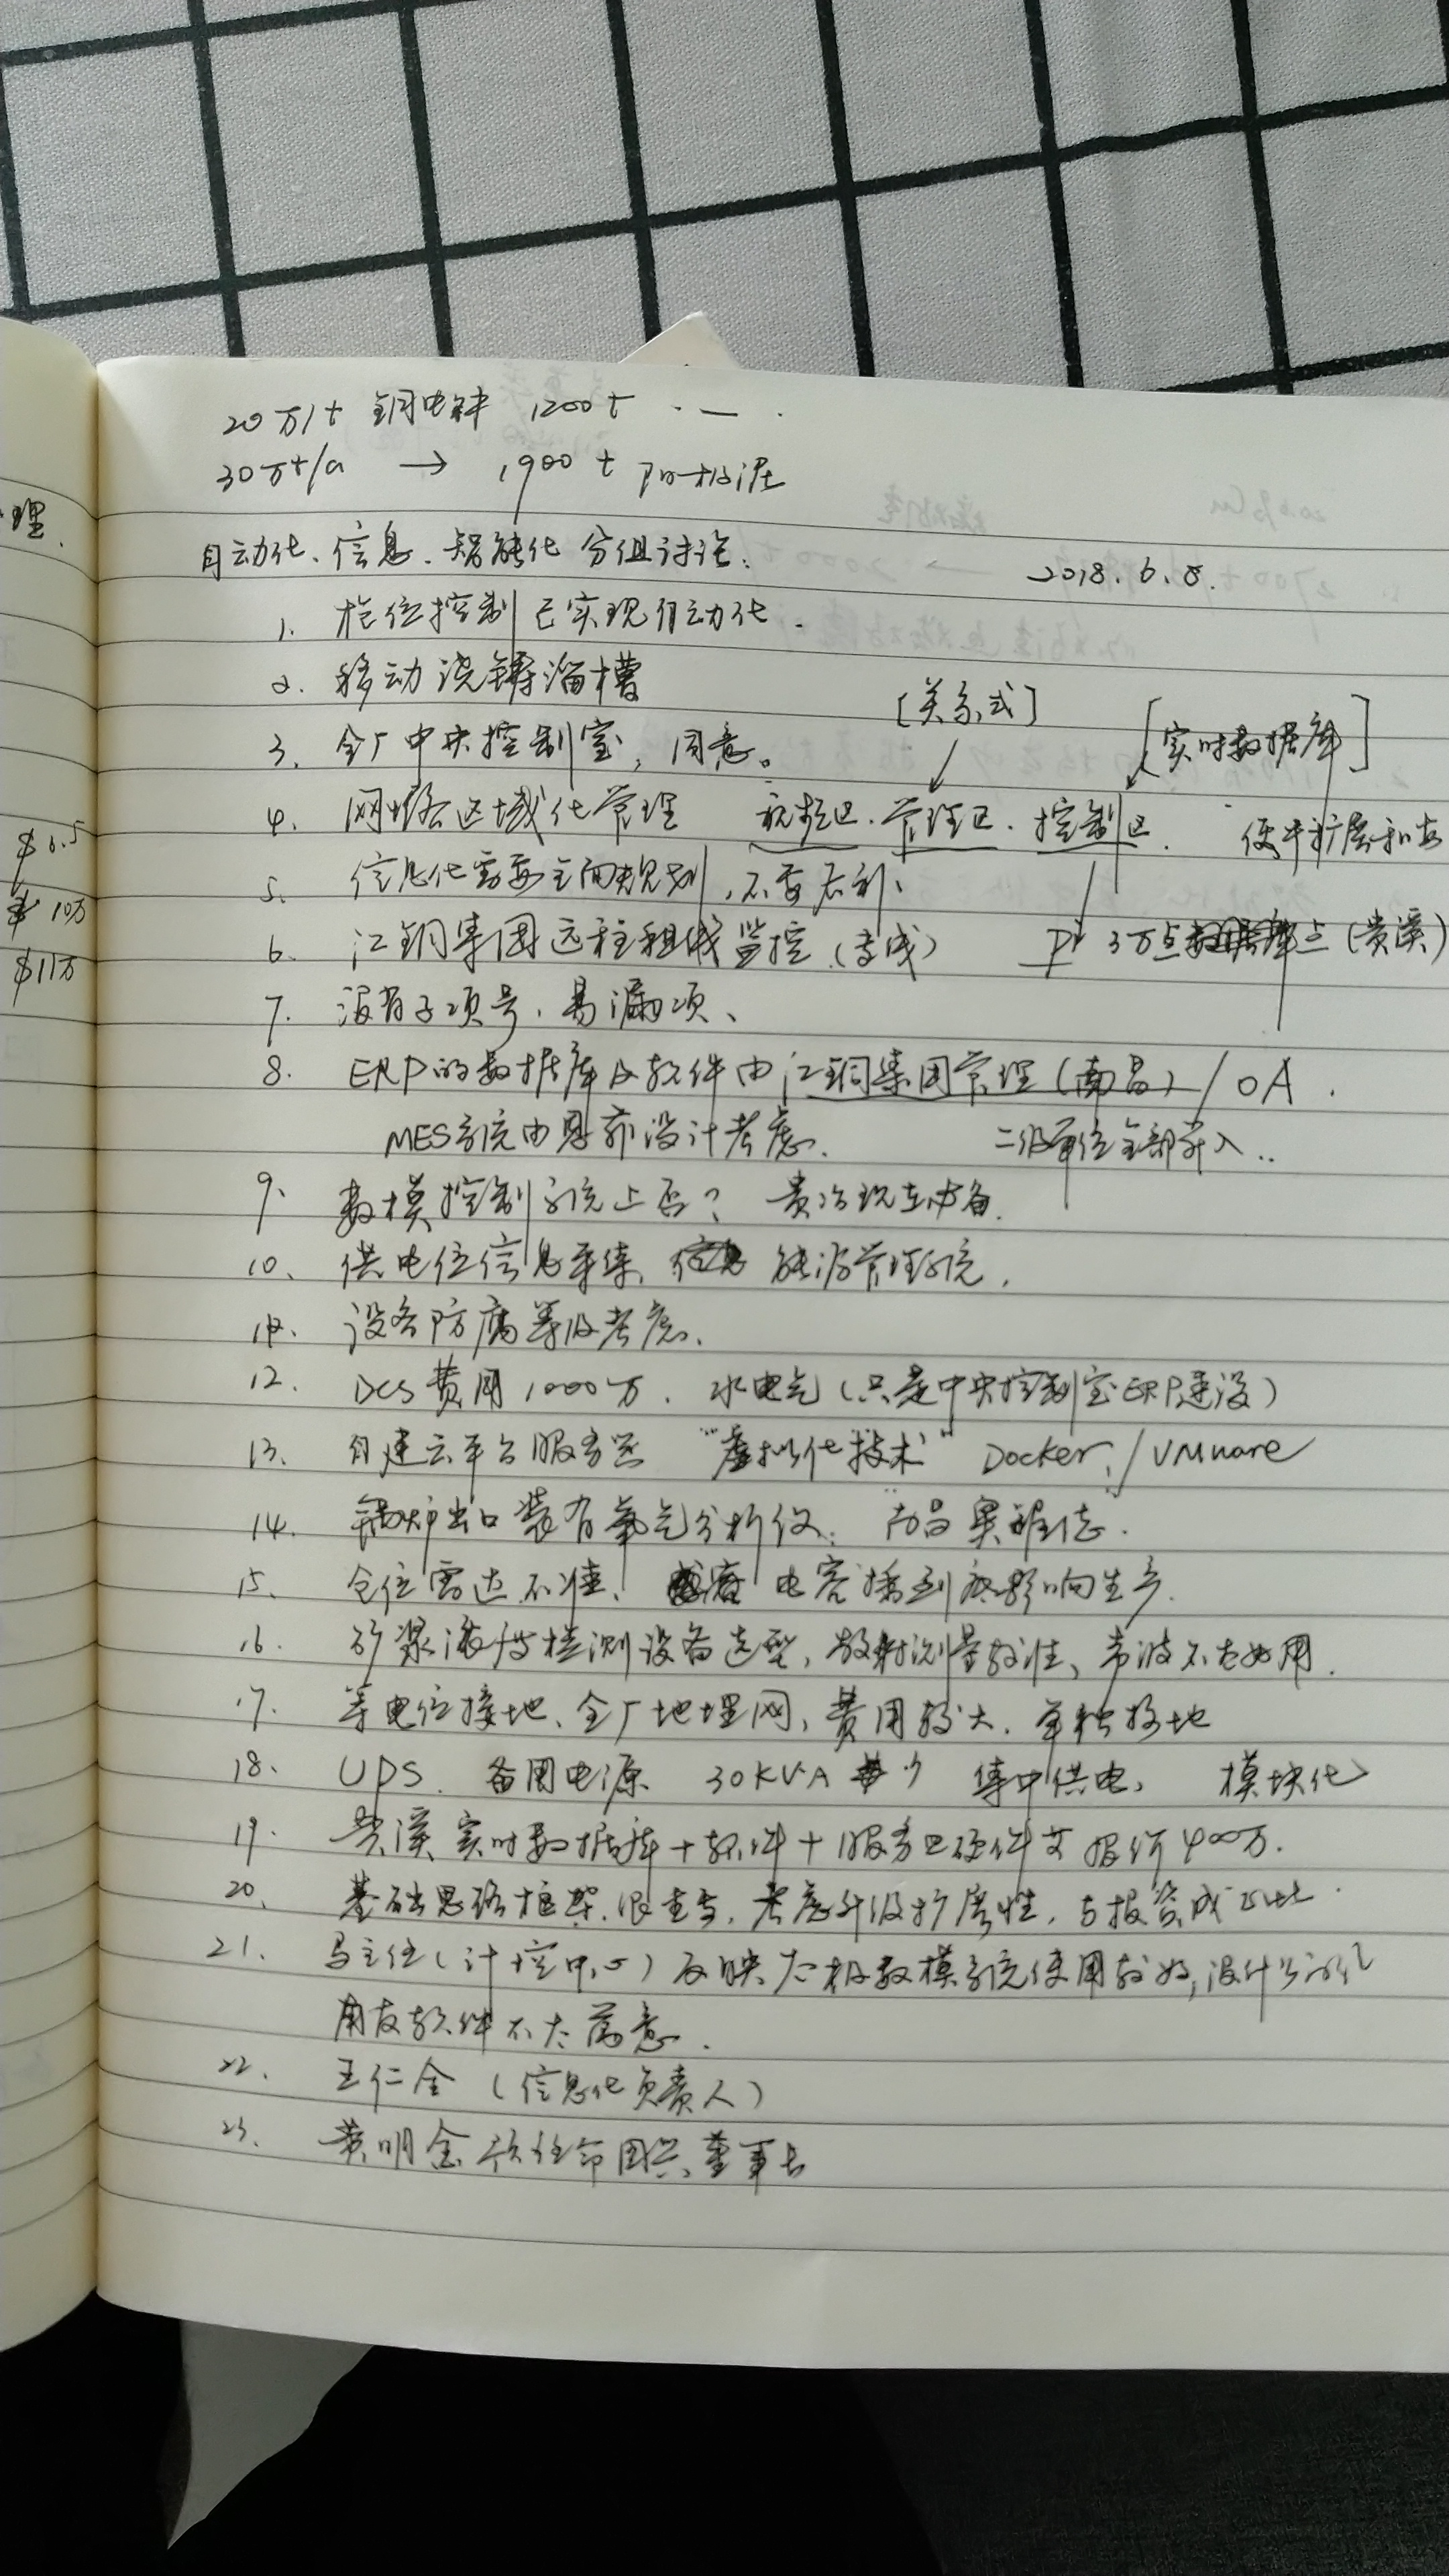 20万/t 铜电解 1200t
30万t/a → 1900 t 阳极泥
理.
自动化、信息、智能化 分组讨论.
2018.6.8.
1. 枪位控制已实现自动化.
2. 移动浇铸溜槽
[关系式]
3. 全厂中央控制室, 同意。
[实时数据库]
4. 网络区域化管理 视频区. 管理区. 控制区. 便于扩展和
$6.5
5. 信息化需要全面规划, 不要
10万
6. 江铜集团远程组织监控 3万点 点(贵溪)
$11万
7. 没有子项号, 易漏项、
8. ERP的数据库及软件由江铜集团管理(南昌)/OA.
MES系统由恩菲设计考虑. 二级单位全部并入..
9. 数模控制系统上否? 贵冶现在
10、 供电位信息采集, 能源管理系统.
设备防腐等级考虑.
12. DCS费用1000万. 水电气(只是中央控制室ERP建设)
13. 自建云平台服务器 "虚拟化技术" Docker/VMware
14. 锅炉出口装有氧气分析仪. 南昌奥
15. 仓位雷达不准、 电容插到底影响生产.
16. 矿浆液度检测设备选型, 放射测量较准、 不太好用.
17. 等电位接地、全厂地埋网, 费用较大. 单独接地
18. UPS. 备用电源 30KVA 集中供电, 模块化
19. 贵溪实时数据库+软件+服务器硬件 报价400万.
20. 基础思路框架很重要, 考虑升级扩展性, 与投资成正比.
21. 马主任(计控中心)反映 数模系统使用较好,
用友软件不太满意.
22. 王仁全 (信息化负责人)
23. 黄明金 任命国兴董事长